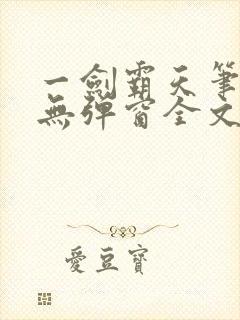 一劍霸天筆
無彈窗全文
愛豆寶